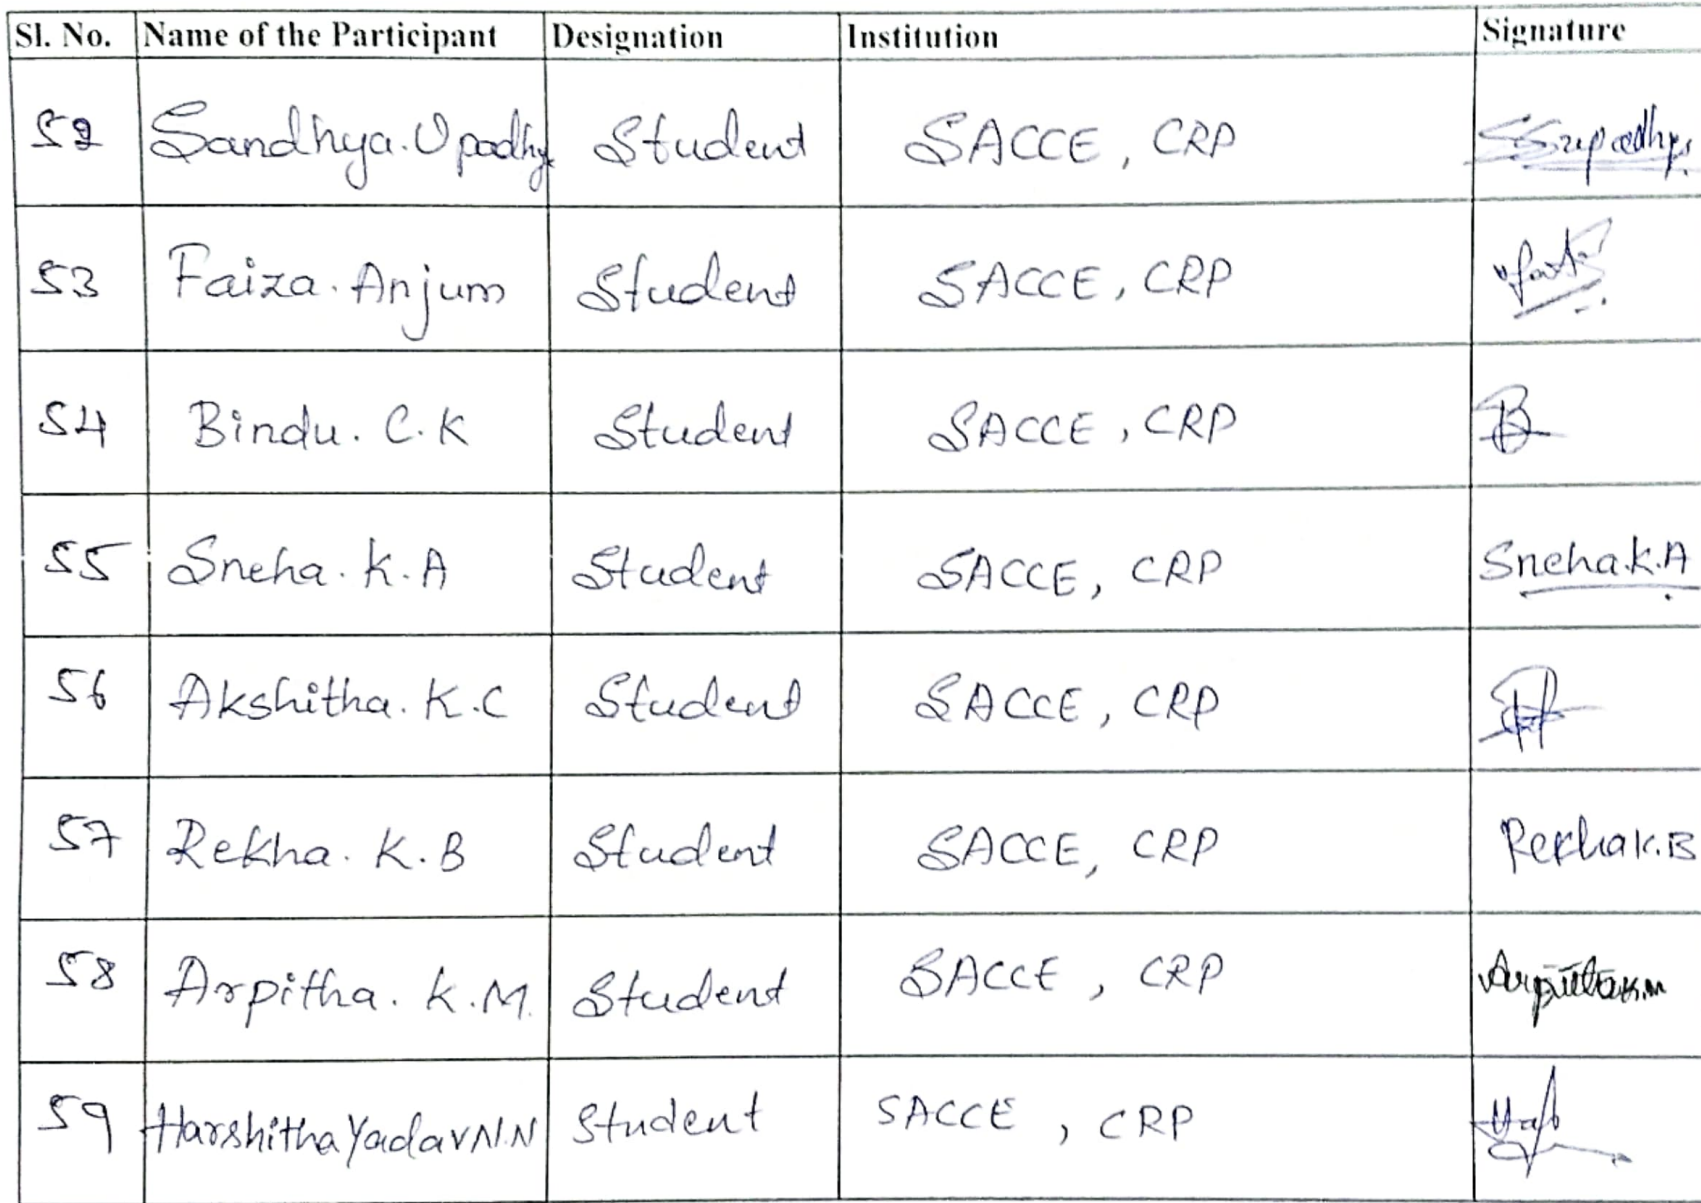 Sl. No. Name of the Participant Designation Institution Signature
52 Sandhya. Upadhy Student SACCE, CRP
53 Faiza. Anjum Student SACCE, CRP
54 Bindu. C. K Student SACCE, CRP B
55 Sneha. K. A Student SACCE, CRP Sneha.K.A
56 Akshitha. K.C Student SACCE, CRP
57 Rekha. K.B Student SACCE, CRP Rekha K.B
58 Arpitha. K.M. Student SACCE, CRP Arpitha K.M
59 Harshitha Yadav N.N Student SACCE, CRP